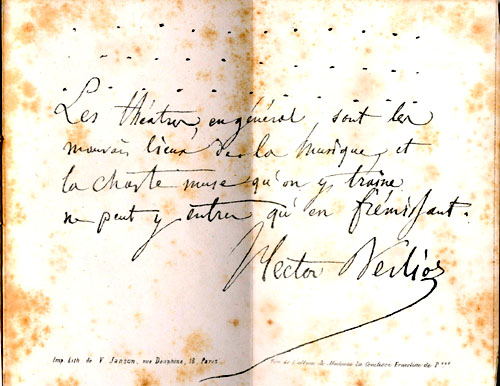 Les théâtres, en général, sont les
mauvais lieux de la musique, et
la chaste muse qu'on y traîne
ne peut y entrer qu'en frémissant.
Hector Berlioz
Imp. lith. de V. Janson, rue Dauphine, 18, Paris.
de Madame la Comtesse de P***